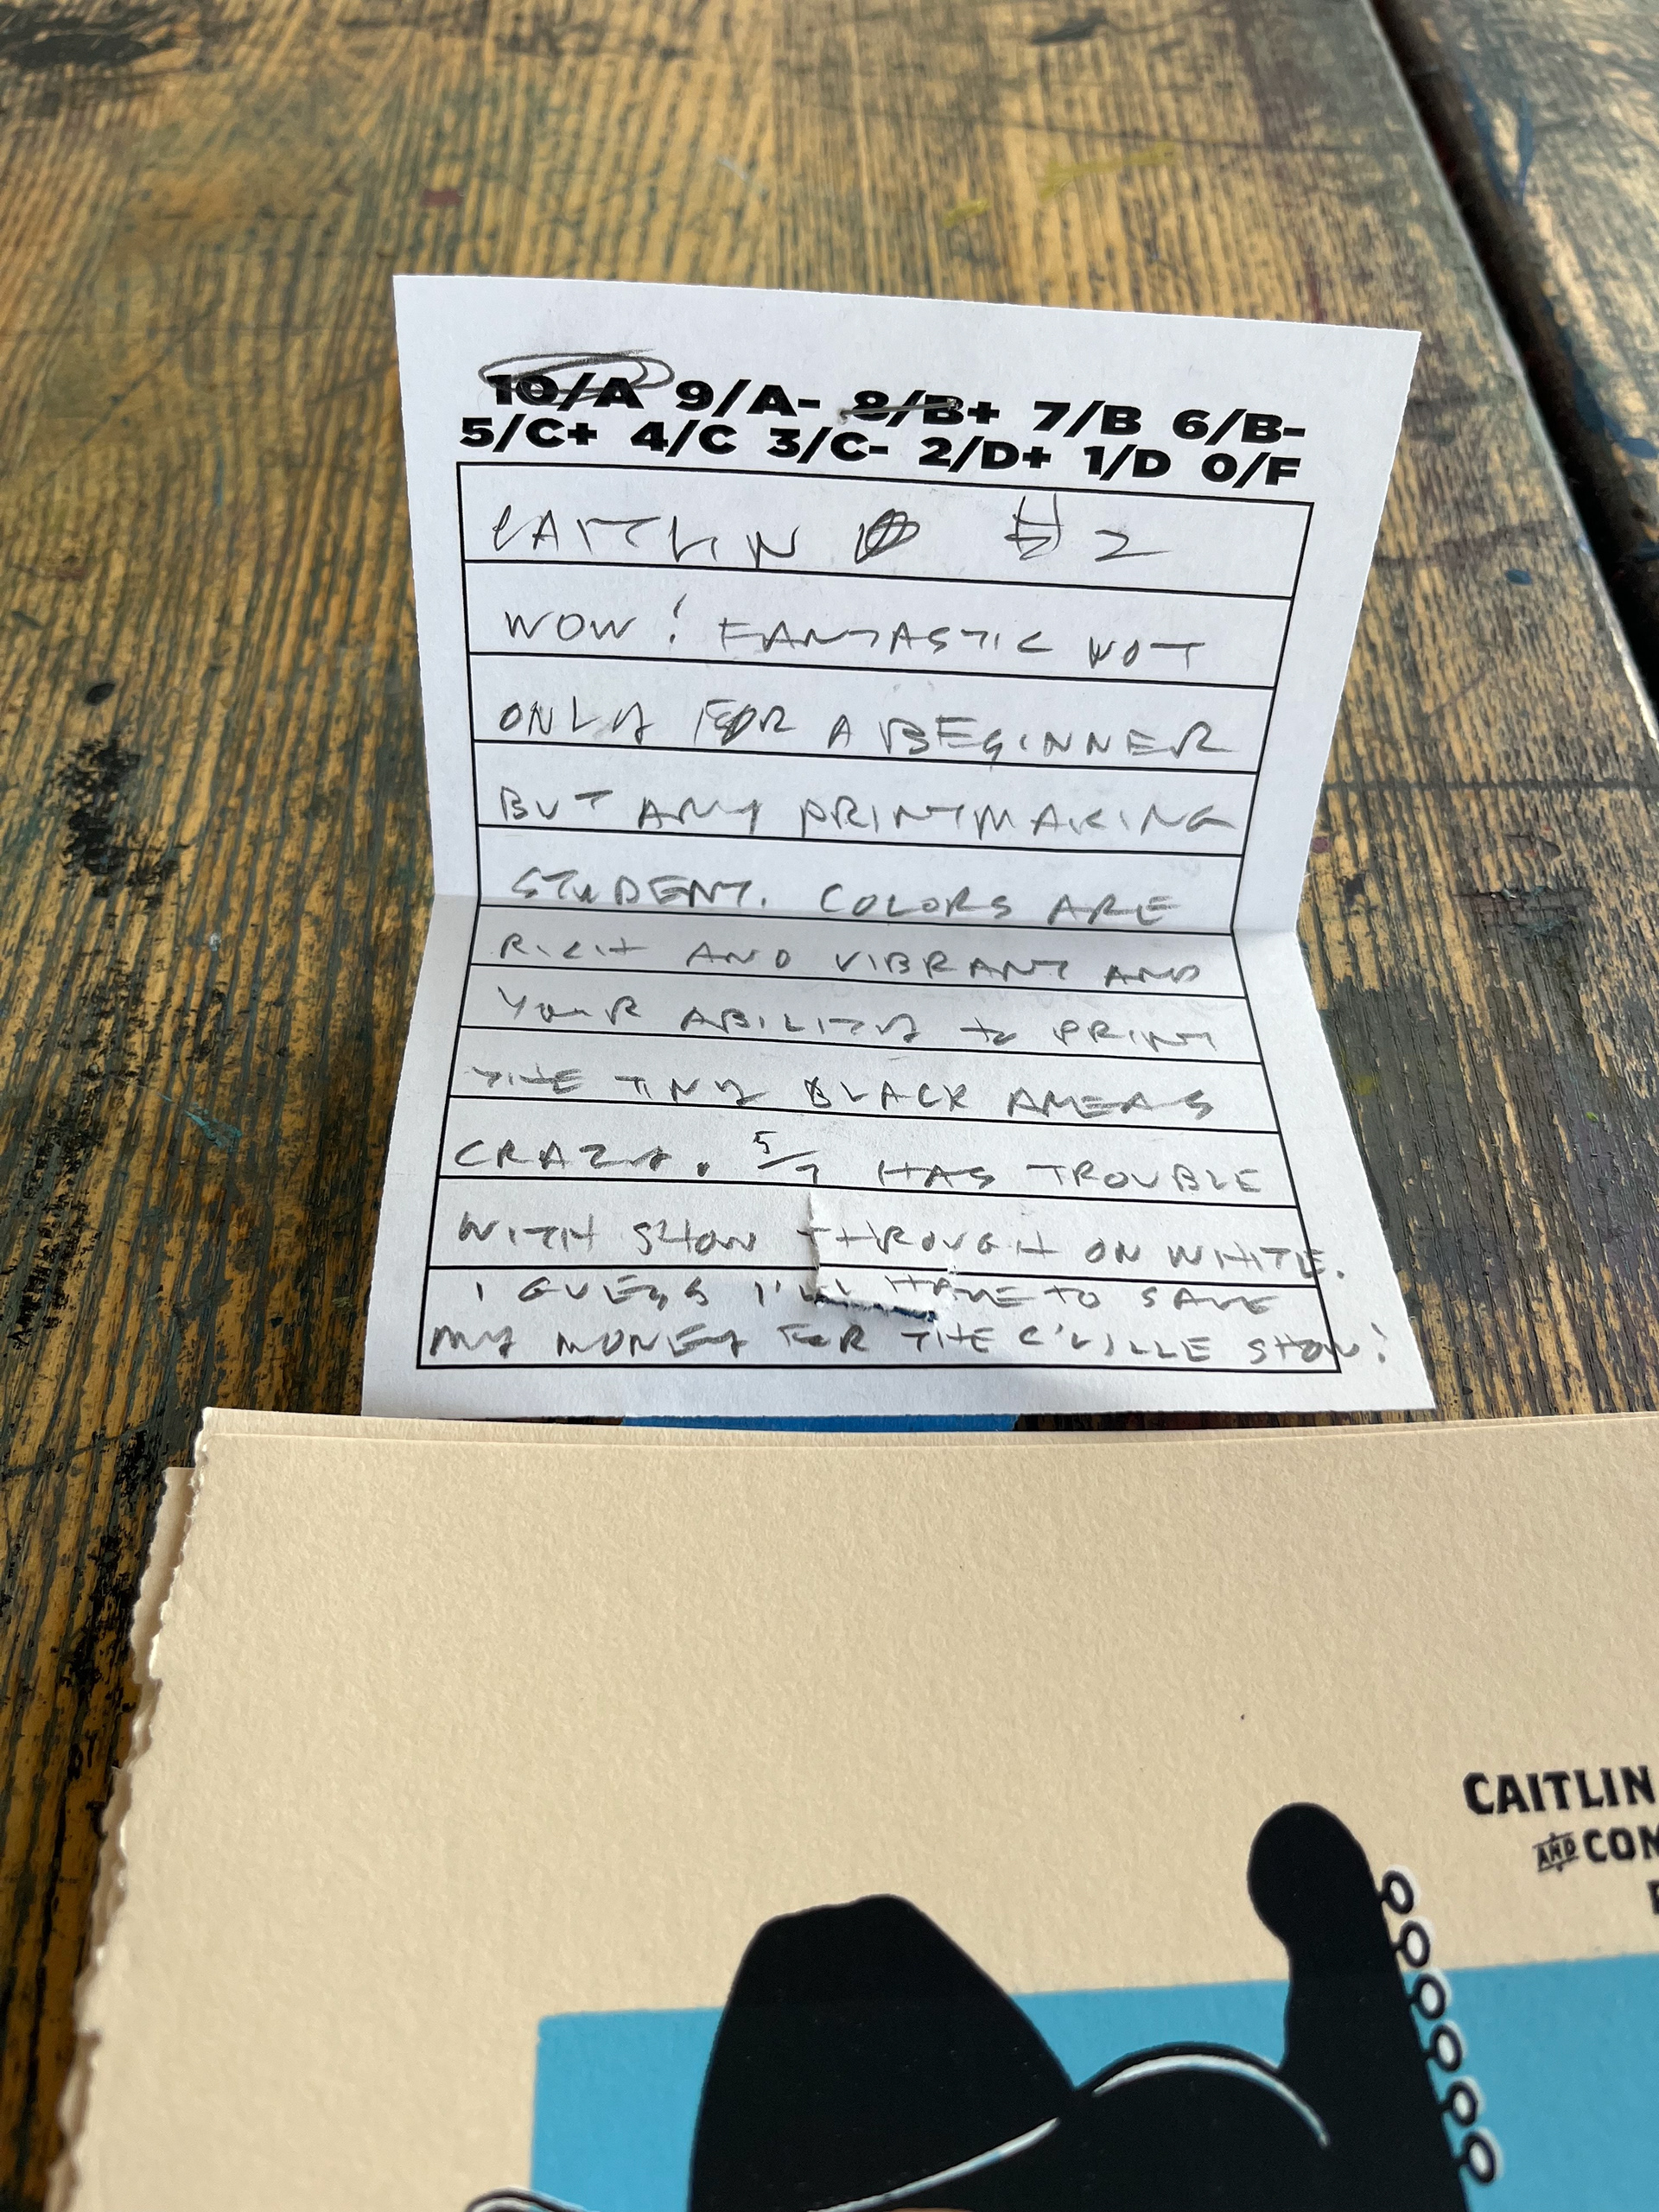 10/A 9/A- 8/B+ 7/B 6/B-
5/C+ 4/C 3/C- 2/D+ 1/D 0/F
CAITLIN #2
WOW! FANTASTIC NOT
ONLY FOR A BEGINNER
BUT ANY PRINTMAKING
STUDENT. COLORS ARE
RICH AND VIBRANT AND
YOUR ABILITY to PRINT
THE TINY BLACK AREAS
CRAZY. 5/7 HAS TROUBLE
WITH SHOW THROUGH ON WHITE.
I GUESS I'LL HAVE TO SAVE
MY MONEY FOR THE C'VILLE SHOW!
CAITLIN
AND COM